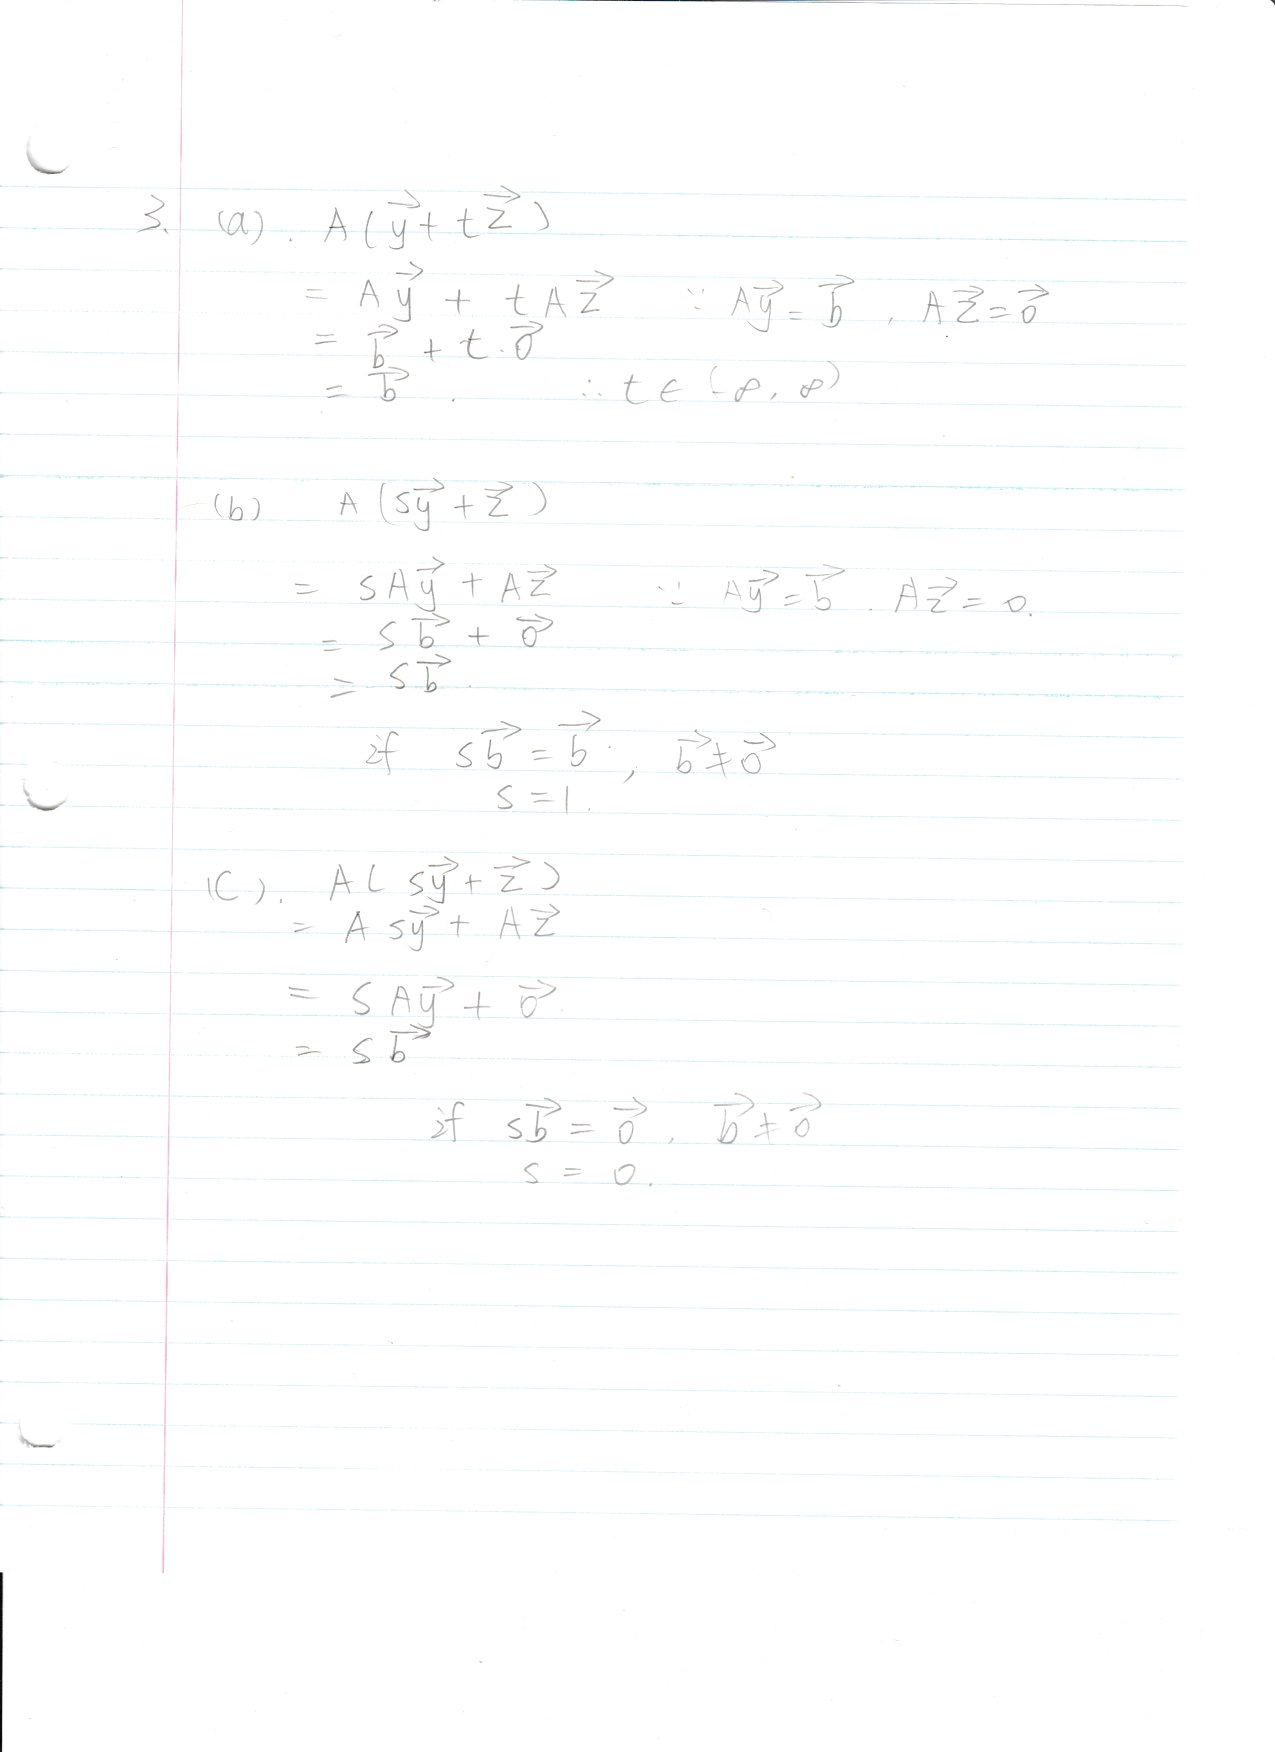 3. (a). A(y⃗ + tz⃗)
= Ay⃗ + tAz⃗ ∵ Ay⃗ = b⃗, Az⃗ = 0⃗
= b⃗ + t·0⃗
= b⃗. ∴ t ∈ (-∞, ∞)
(b) A(sy⃗ + z⃗)
= sAy⃗ + Az⃗ ∵ Ay⃗ = b⃗. Az⃗ = 0.
= sb⃗ + 0⃗
= sb⃗.
if sb⃗ = b⃗, b⃗ ≠ 0⃗
s = 1.
(C). A(sy⃗ + z⃗)
= Asy⃗ + Az⃗
= sAy⃗ + 0⃗.
= sb⃗
if sb⃗ = 0⃗, b⃗ ≠ 0⃗
s = 0.